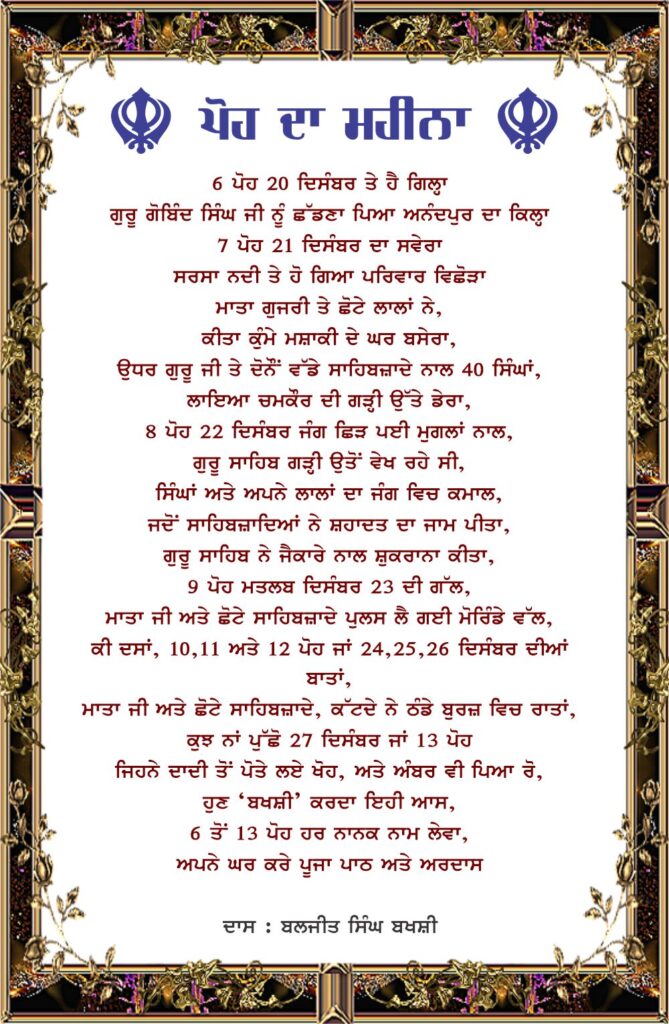 ਪੋਹ ਦਾ ਮਹੀਨਾ
6 ਪੋਹ 20 ਦਿਸੰਬਰ ਤੇ ਹੈ ਗਿਲ੍ਹਾ
ਗੁਰੂ ਗੋਬਿੰਦ ਸਿੰਘ ਜੀ ਨੂੰ ਛੱਡਣਾ ਪਿਆ ਅਨੰਦਪੁਰ ਦਾ ਕਿਲ੍ਹਾ
7 ਪੋਹ 21 ਦਿਸੰਬਰ ਦਾ ਸਵੇਰਾ
ਸਰਸਾ ਨਦੀ ਤੇ ਹੋ ਗਿਆ ਪਰਿਵਾਰ ਵਿਛੋੜਾ
ਮਾਤਾ ਗੁਜਰੀ ਤੇ ਛੋਟੇ ਲਾਲਾਂ ਨੇ,
ਕੀਤਾ ਕੁੰਮੇ ਮਸ਼ਾਕੀ ਦੇ ਘਰ ਬਸੇਰਾ,
ਉਧਰ ਗੁਰੂ ਜੀ ਤੇ ਦੋਨੌਂ ਵੱਡੇ ਸਾਹਿਬਜ਼ਾਦੇ ਨਾਲ 40 ਸਿੰਘਾਂ,
ਲਾਇਆ ਚਮਕੌਰ ਦੀ ਗੜ੍ਹੀ ਉੱਤੇ ਡੇਰਾ,
8 ਪੋਹ 22 ਦਿਸੰਬਰ ਜੰਗ ਛਿੜ ਪਈ ਮੁਗਲਾਂ ਨਾਲ,
ਗੁਰੂ ਸਾਹਿਬ ਗੜ੍ਹੀ ਉਤੋਂ ਵੇਖ ਰਹੇ ਸੀ,
ਸਿੰਘਾਂ ਅਤੇ ਅਪਨੇ ਲਾਲਾਂ ਦਾ ਜੰਗ ਵਿਚ ਕਮਾਲ,
ਜਦੋਂ ਸਾਹਿਬਜ਼ਾਦਿਆਂ ਨੇ ਸ਼ਹਾਦਤ ਦਾ ਜਾਮ ਪੀਤਾ,
ਗੁਰੂ ਸਾਹਿਬ ਨੇ ਜੈਕਾਰੇ ਨਾਲ ਸ਼ੁਕਰਾਨਾ ਕੀਤਾ,
9 ਪੋਹ ਮਤਲਬ ਦਿਸੰਬਰ 23 ਦੀ ਗੱਲ,
ਮਾਤਾ ਜੀ ਅਤੇ ਛੋਟੇ ਸਾਹਿਬਜ਼ਾਦੇ ਪੁਲਸ ਲੈ ਗਈ ਮੋਰਿੰਡੇ ਵੱਲ,
ਕੀ ਦਸਾਂ, 10,11 ਅਤੇ 12 ਪੋਹ ਜਾਂ 24,25,26 ਦਿਸੰਬਰ ਦੀਆਂ
ਬਾਤਾਂ,
ਮਾਤਾ ਜੀ ਅਤੇ ਛੋਟੇ ਸਾਹਿਬਜ਼ਾਦੇ, ਕੱਟਦੇ ਨੇ ਠੰਡੇ ਬੁਰਜ਼ ਵਿਚ ਰਾਤਾਂ,
ਕੁਝ ਨਾਂ ਪੁੱਛੋ 27 ਦਿਸੰਬਰ ਜਾਂ 13 ਪੋਹ
ਜਿਹਨੇ ਦਾਦੀ ਤੋਂ ਪੋਤੇ ਲਏ ਖੋਹ, ਅਤੇ ਅੰਬਰ ਵੀ ਪਿਆ ਰੋ,
ਹੁਣ ‘ਬਖਸ਼ੀ’ ਕਰਦਾ ਇਹੀ ਆਸ,
6 ਤੋਂ 13 ਪੋਹ ਹਰ ਨਾਨਕ ਨਾਮ ਲੇਵਾ,
ਅਪਨੇ ਘਰ ਕਰੇ ਪੂਜਾ ਪਾਠ ਅਤੇ ਅਰਦਾਸ
ਦਾਸ : ਬਲਜੀਤ ਸਿੰਘ ਬਖਸ਼ੀ